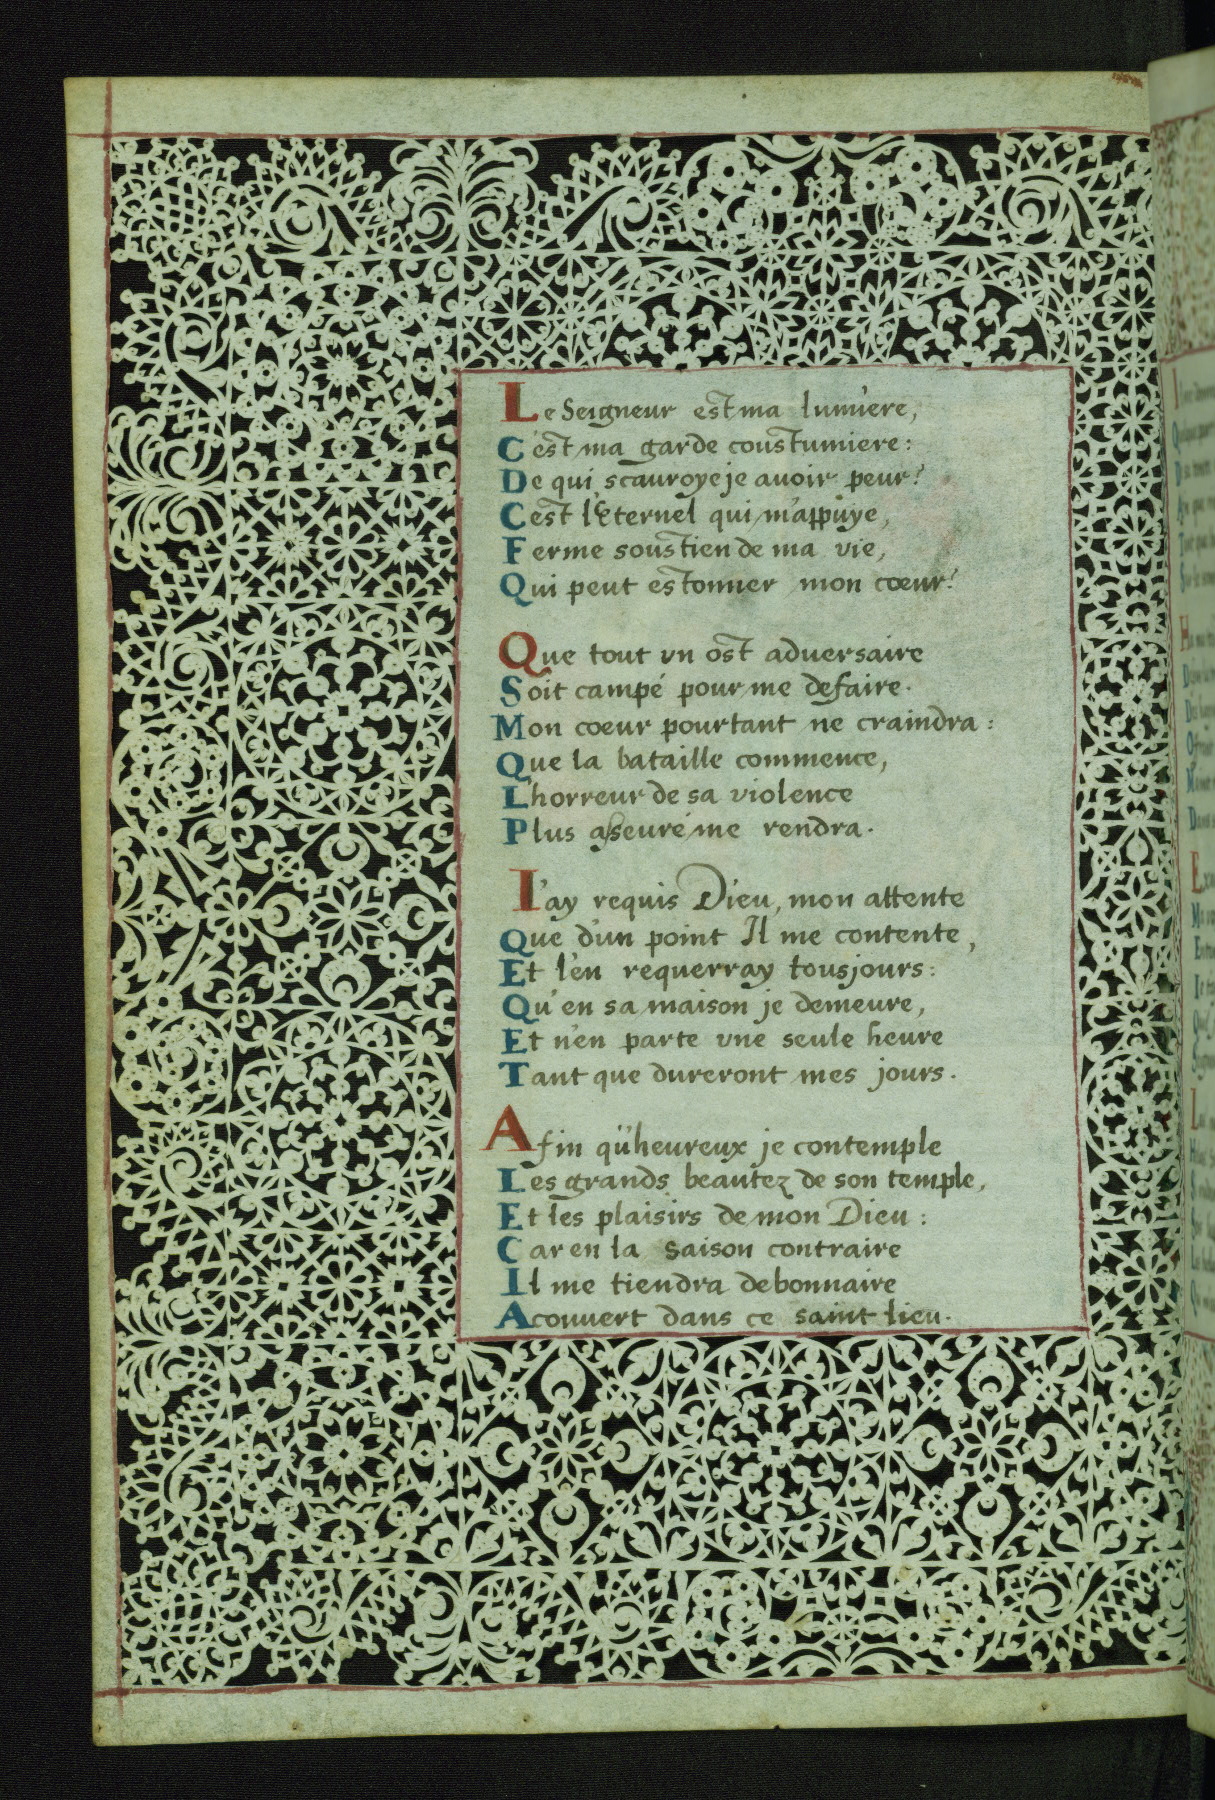 Le Seigneur est ma lumiere,
C'est ma garde coustumiere:
De qui scauroye je avoir peur?
C'est l'Eternel qui m'appuye,
Ferme soustien de ma vie,
Qui peut estonner mon coeur?
Que tout vn ost adversaire
Soit campé pour me defaire.
Mon coeur pourtant ne craindra:
Que la bataille commence,
L'horreur de sa violence
Plus asseuré me rendra.
I'ay requis Dieu, mon attente
Que d'un point Il me contente,
Et l'en requerray tousjours:
Qu'en sa maison je demeure,
Et n'en parte vne seule heure
Tant que dureront mes jours.
Afin qu'heureux je contemple
Les grands beautez de son temple,
Et les plaisirs de mon Dieu:
Car en la saison contraire
Il me tiendra debonnaire
A couvert dans ce saint lieu.